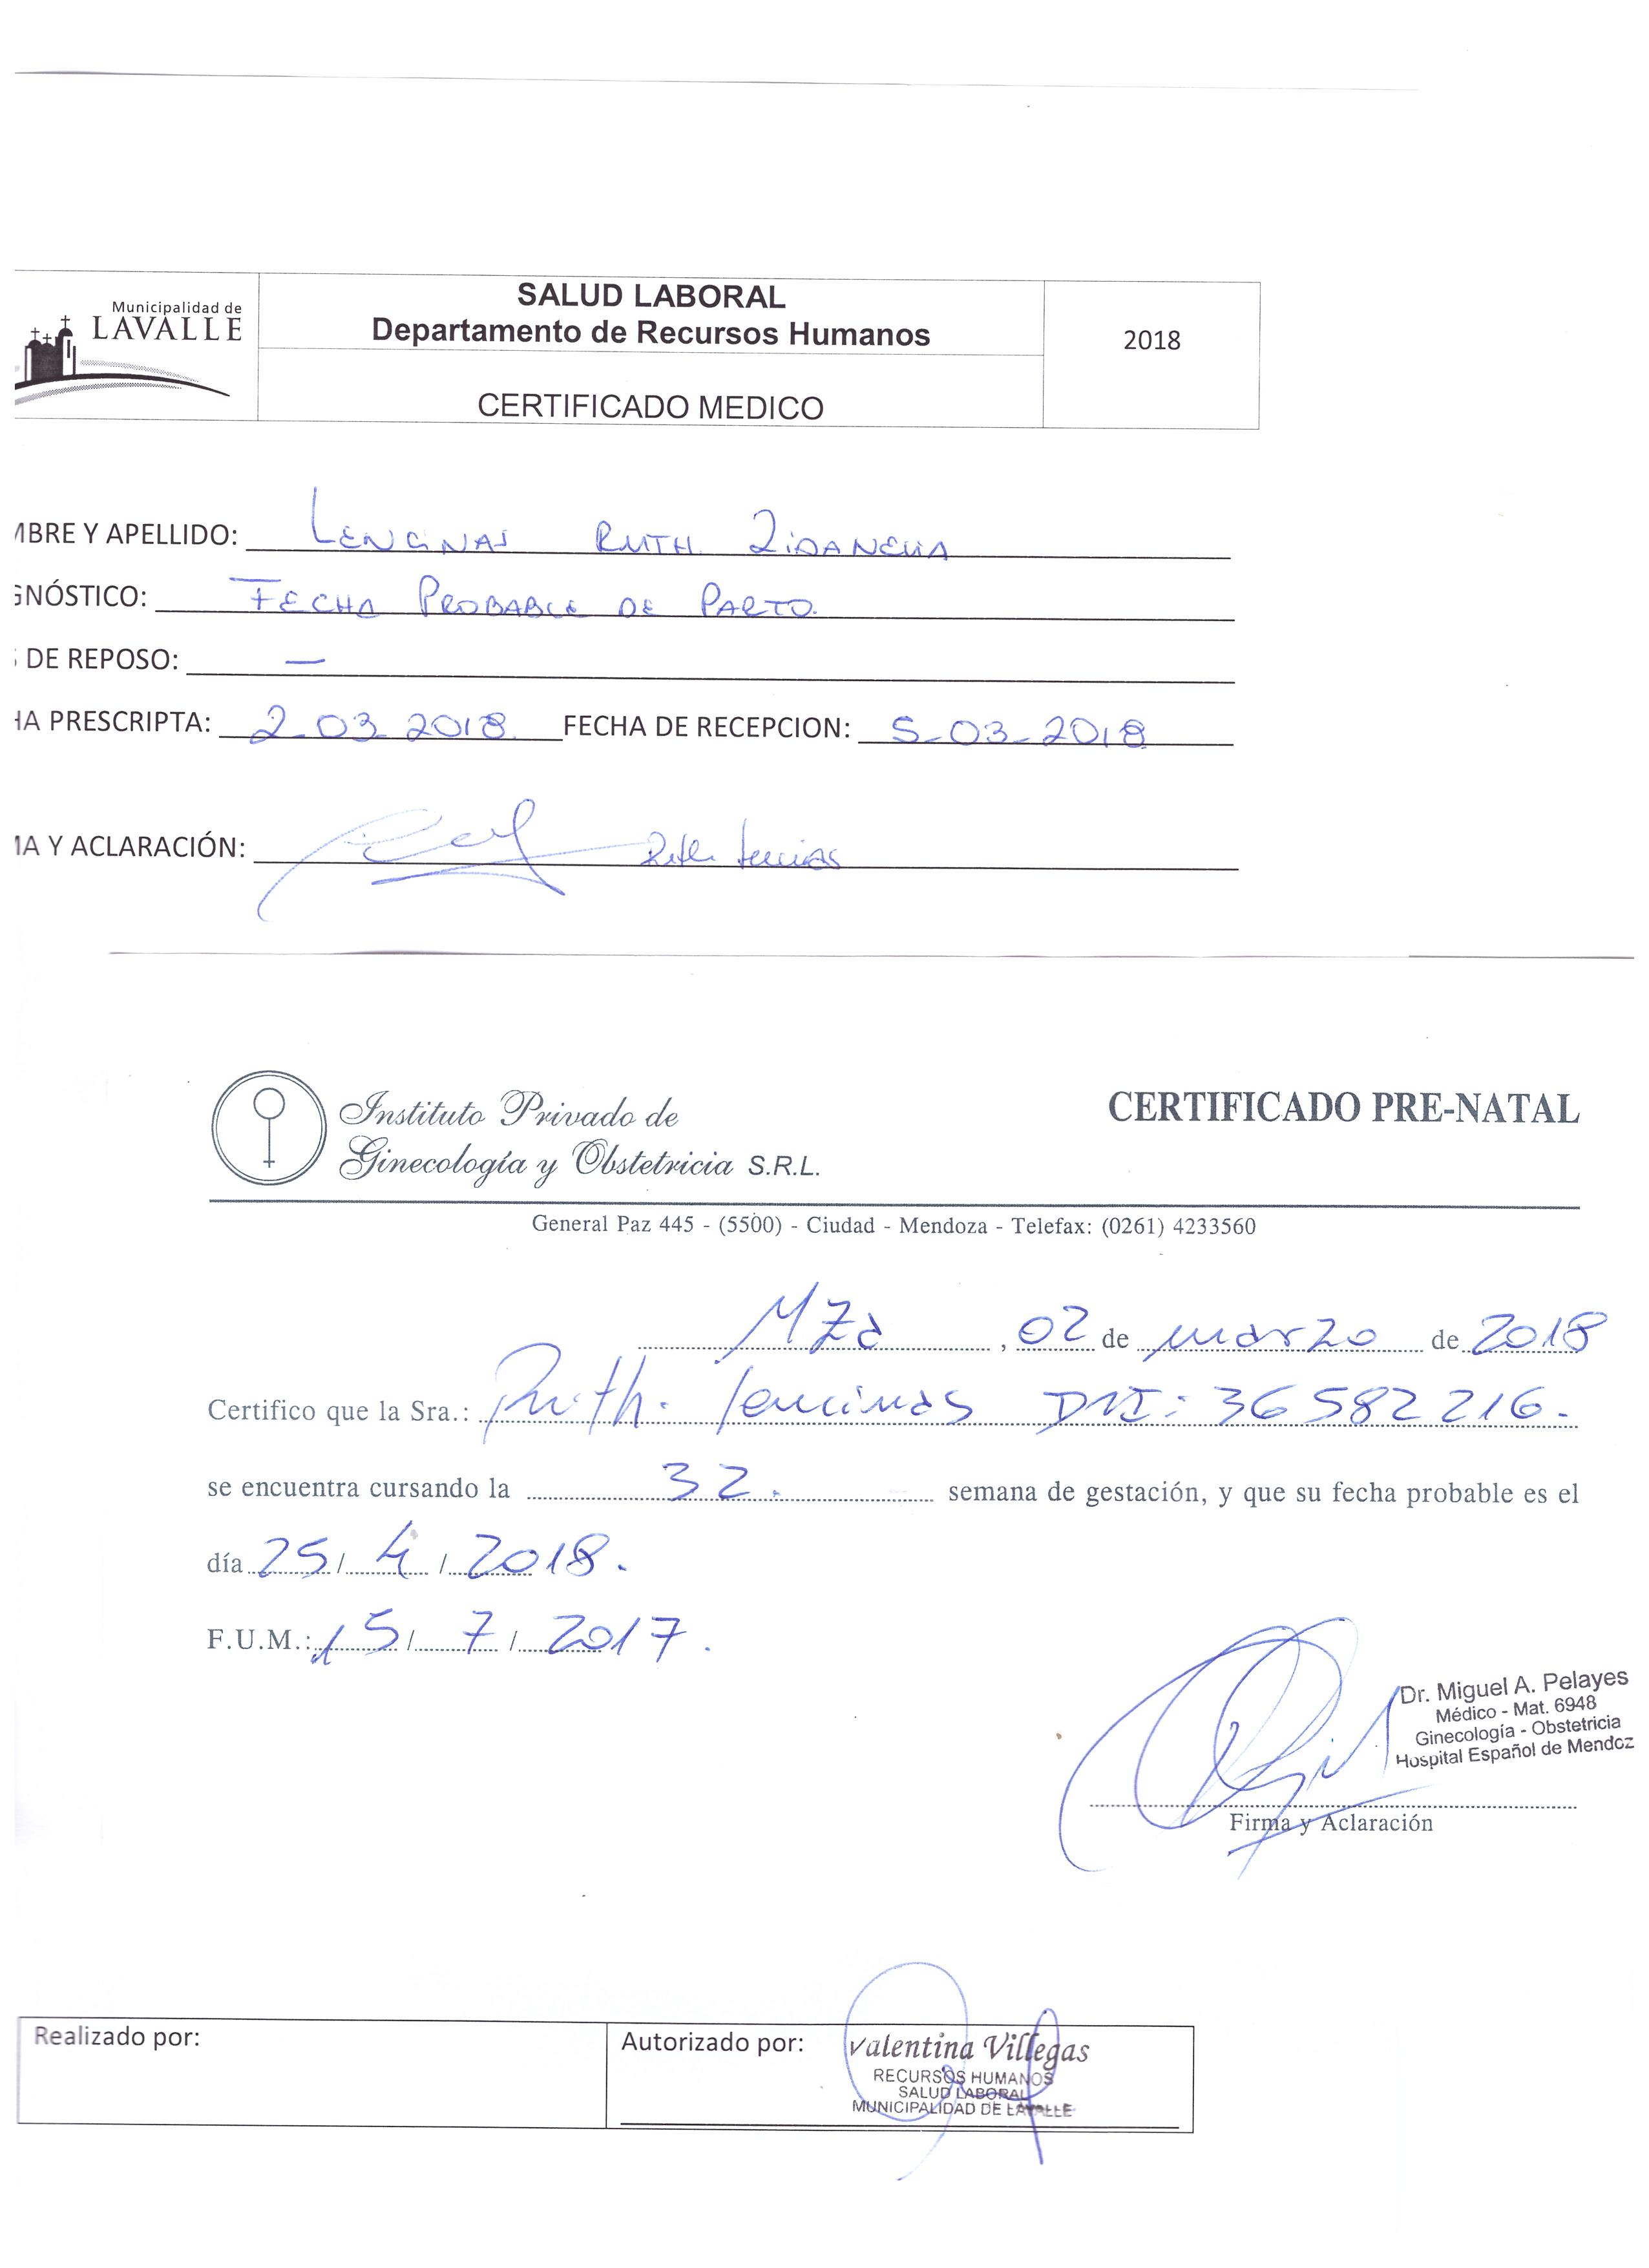 Municipalidad de
LAVALLE
SALUD LABORAL
Departamento de Recursos Humanos
CERTIFICADO MEDICO
2018
MBRE Y APELLIDO: LENCINAS RUTH
GNÓSTICO: FECHA PROBABLE DE PARTO.
DE REPOSO: —
HA PRESCRIPTA: 2-03-2018 FECHA DE RECEPCION: 5-03-2018
MA Y ACLARACIÓN: Ruth Lencinas
Instituto Privado de
Ginecología y Obstetricia S.R.L.
CERTIFICADO PRE-NATAL
General Paz 445 - (5500) - Ciudad - Mendoza - Telefax: (0261) 4233560
MZA, 02 de marzo de 2018
Certifico que la Sra.: Ruth. Lencinas DNI: 36582216.-
se encuentra cursando la 32. semana de gestación, y que su fecha probable es el
día 25/ 4 / 2018.
F.U.M.: 15/ 7 / 2017.
Dr. Miguel A. Pelayes
Médico - Mat. 6948
Ginecología - Obstetricia
Hospital Español de Mendoz
Firma y Aclaración
Realizado por:
Autorizado por:
Valentina Villegas
RECURSOS HUMANOS
SALUD LABORAL
MUNICIPALIDAD DE LAVALLE